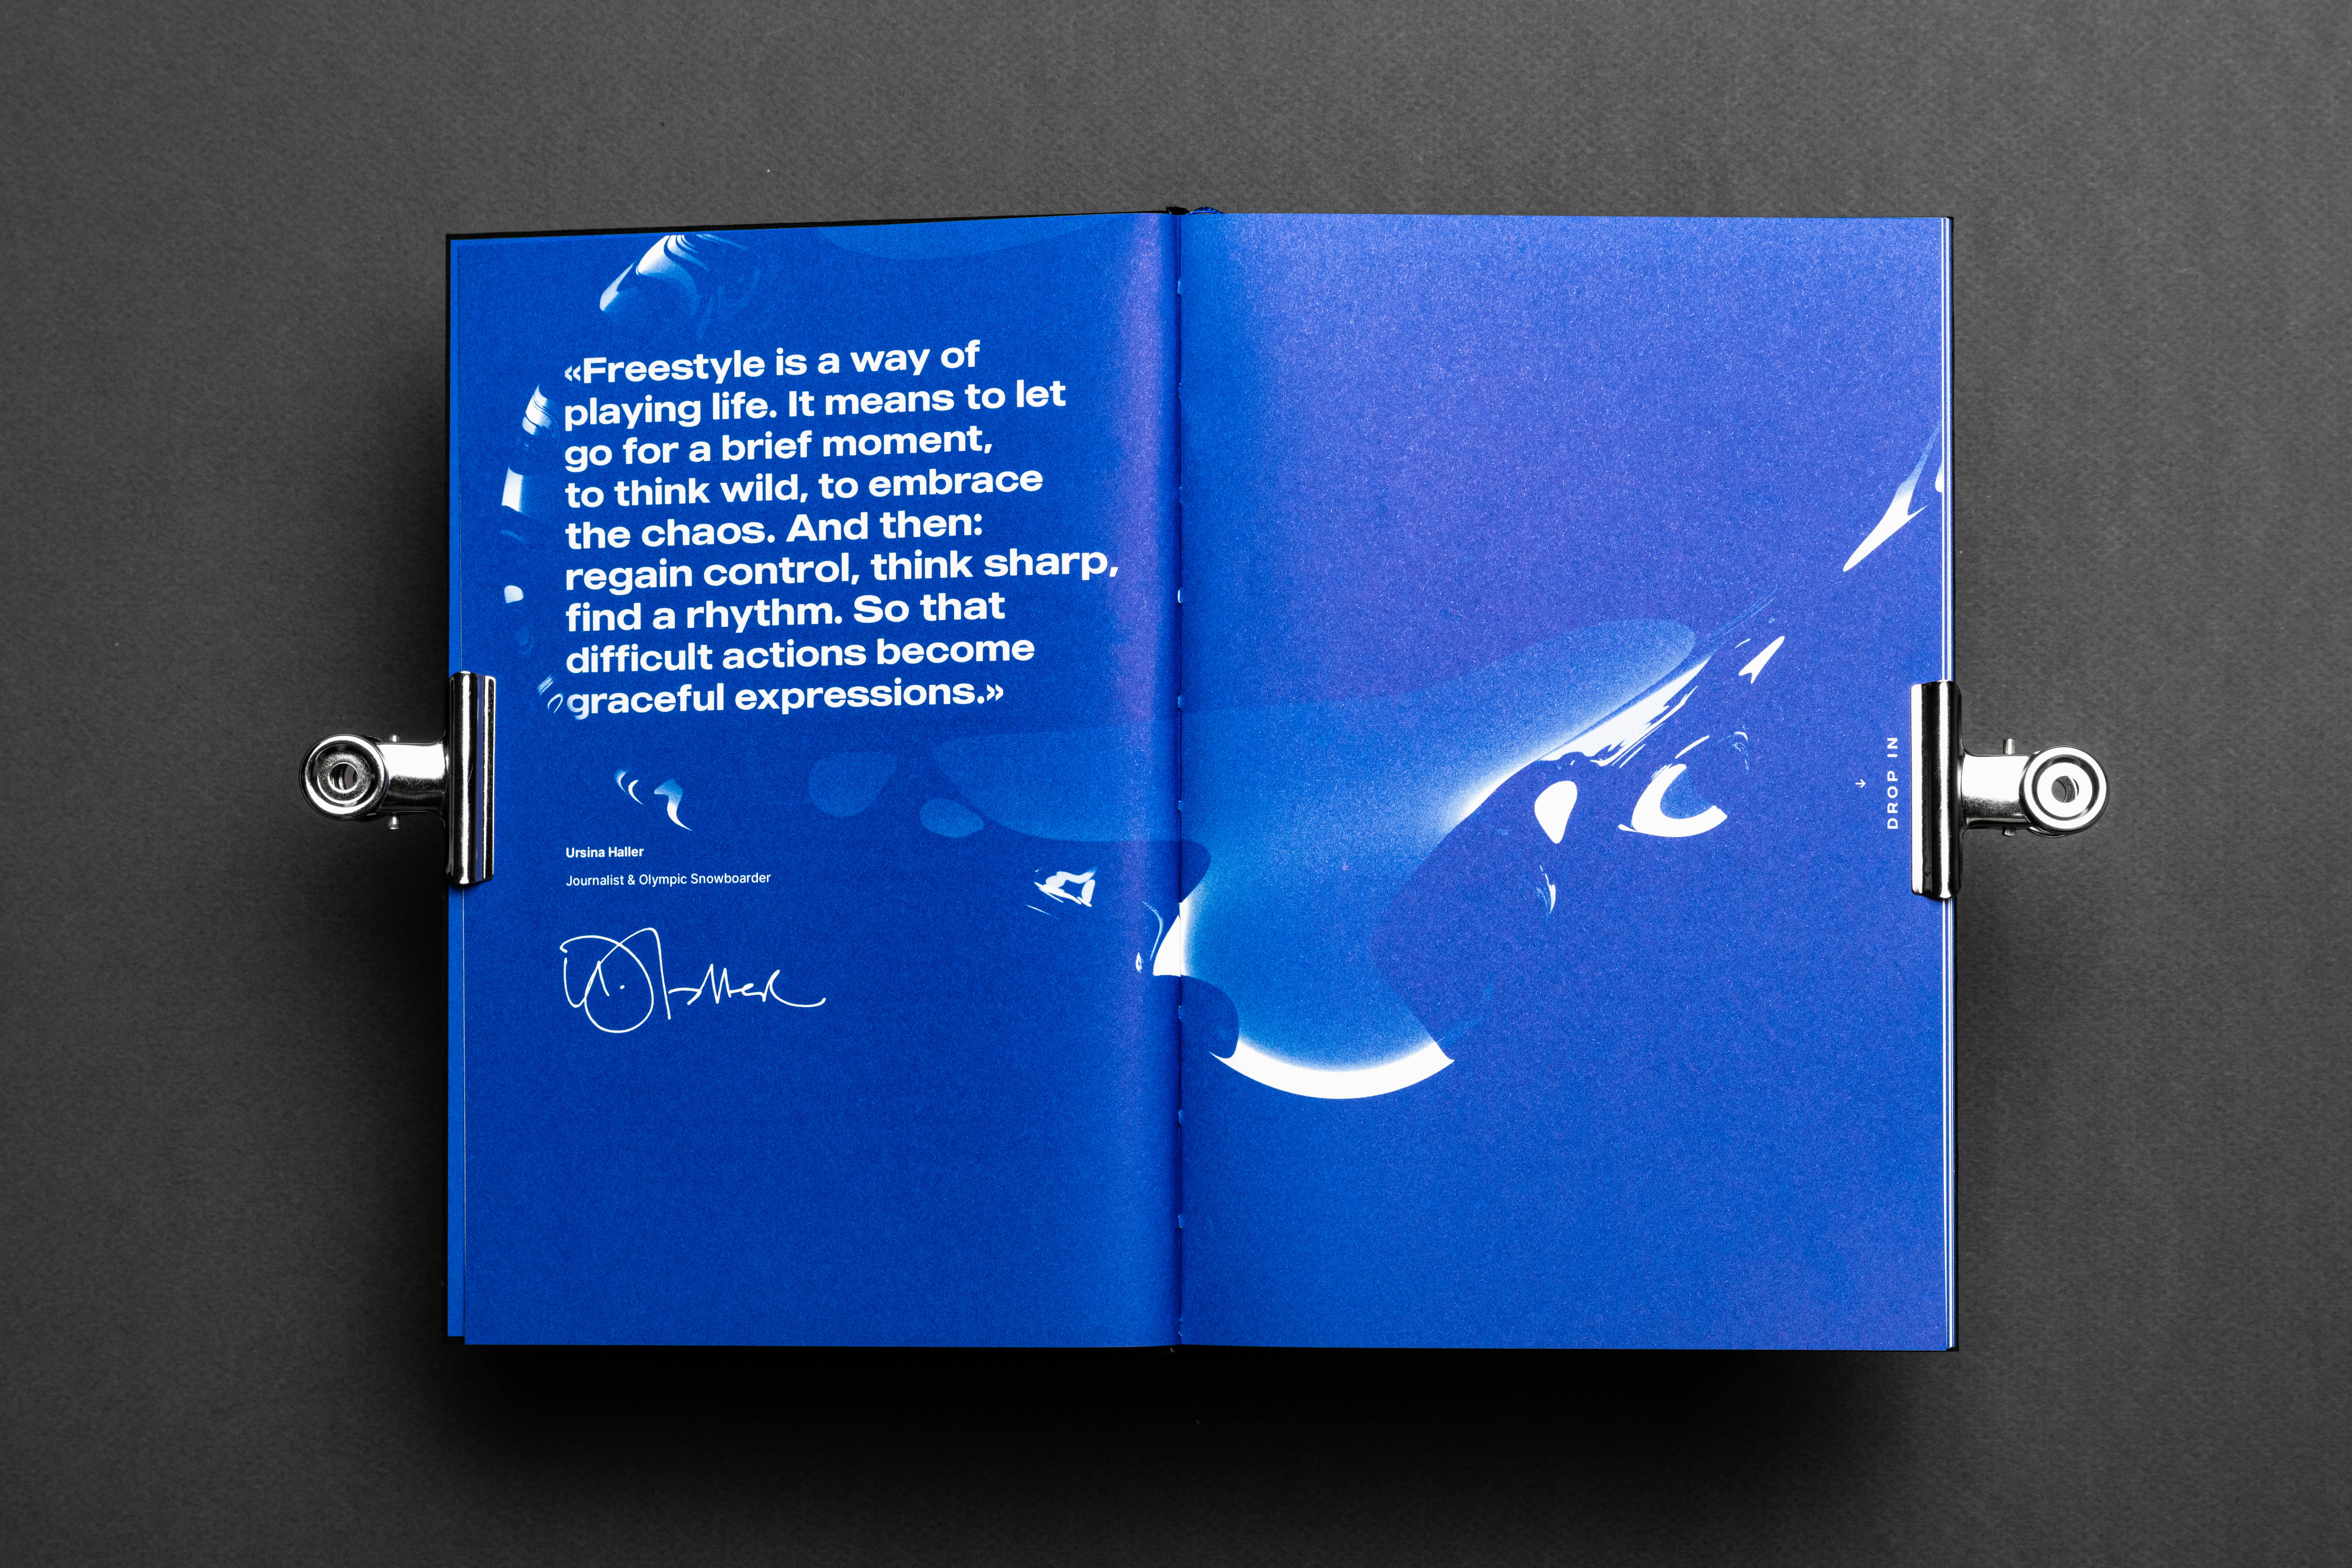 «Freestyle is a way of
playing life. It means to let
go for a brief moment,
to think wild, to embrace
the chaos. And then:
regain control, think sharp,
find a rhythm. So that
difficult actions become
graceful expressions.»
Ursina Haller
Journalist & Olympic Snowboarder
U. Haller
DROP IN
→